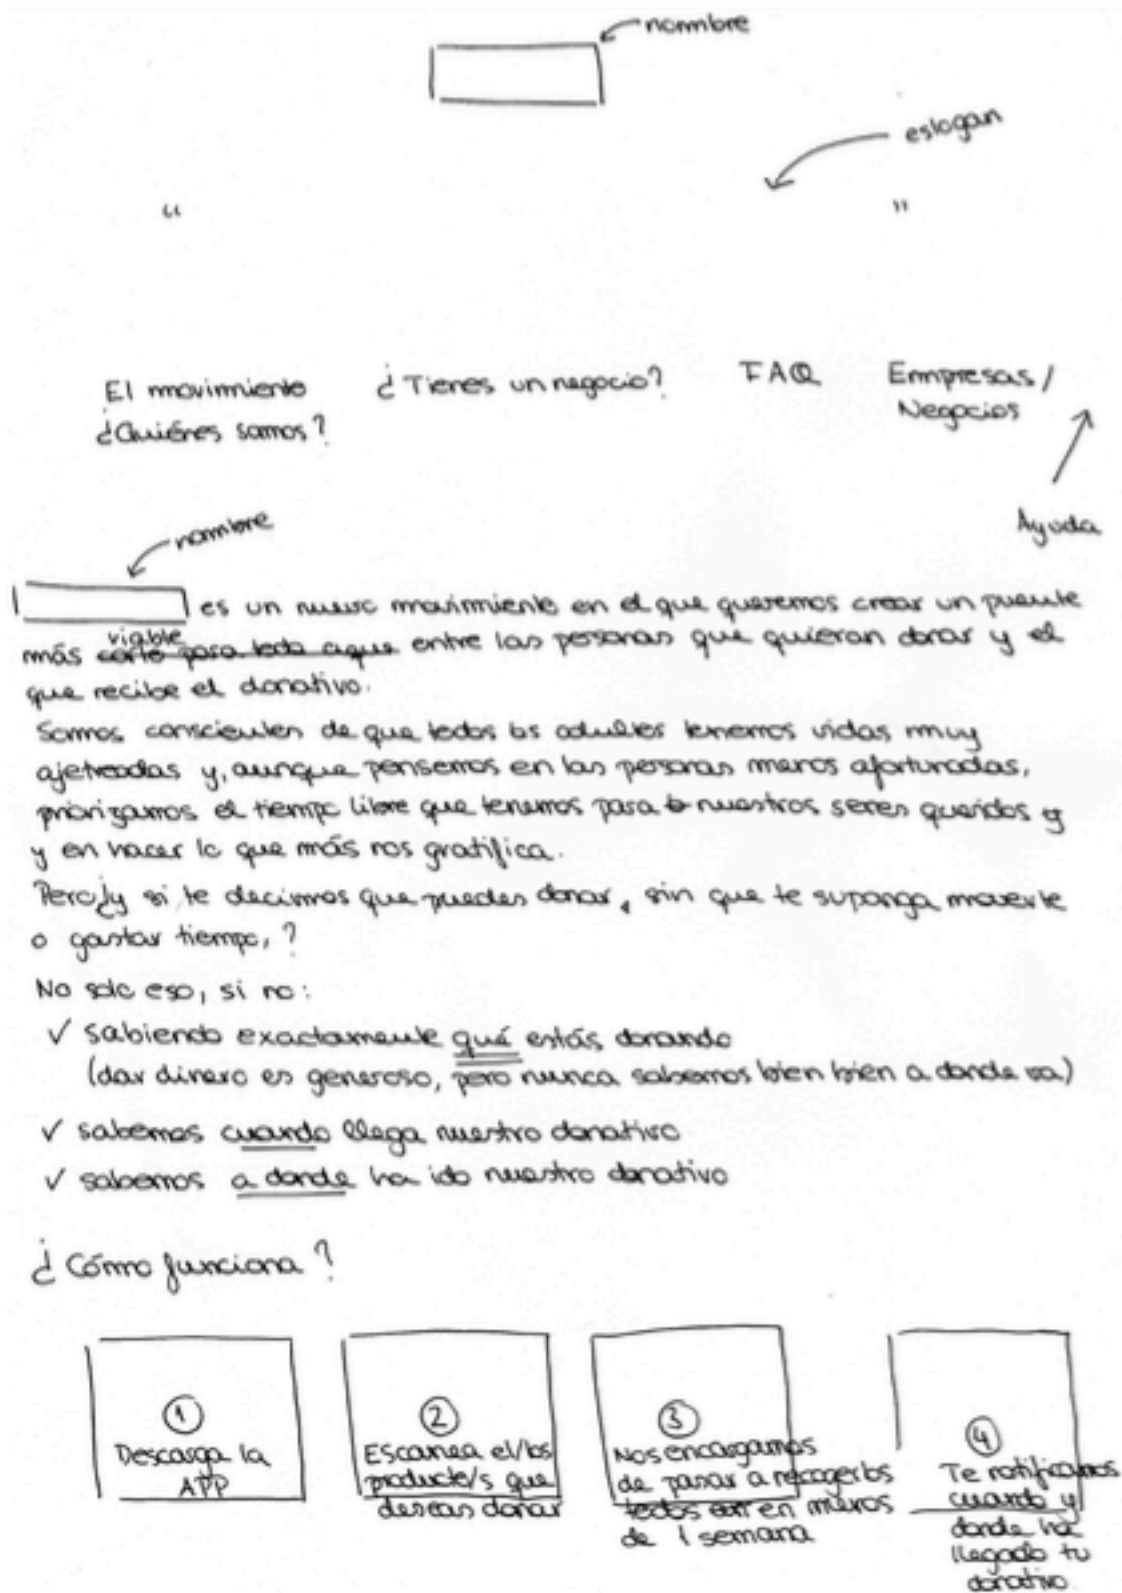 nombre
eslogan
“ ”
El movimiento ¿Tienes un negocio? FAQ Empresas/
¿Quiénes somos? Negocios
Ayuda
nombre
es un nuevo movimiento en el que queremos crear un puente
viable
más corto para todo aque entre las personas que quieran donar y el
que recibe el donativo.
Somos conscientes de que todos los adultos tenemos vidas muy
ajetreadas y, aunque pensemos en las personas menos afortunadas,
priorizamos el tiempo libre que tenemos para nuestros seres queridos y
y en hacer lo que más nos gratifica.
Pero ¿y si te decimos que puedes donar, sin que te suponga moverte
o gastar tiempo, ?
No solo eso, si no:
✓ sabiendo exactamente qué estás donando
(dar dinero es generoso, pero nunca sabemos bien bien a donde va)
✓ sabemos cuando llega nuestro donativo
✓ sabemos a donde ha ido nuestro donativo
¿Cómo funciona?
1
Descarga la
APP
2
Escanea el/los
producto/s que
deseas donar
3
Nos encargamos
de pasar a recogerlos
todos en menos
de 1 semana
4
Te notificamos
cuando y
donde ha
llegado tu
donativo